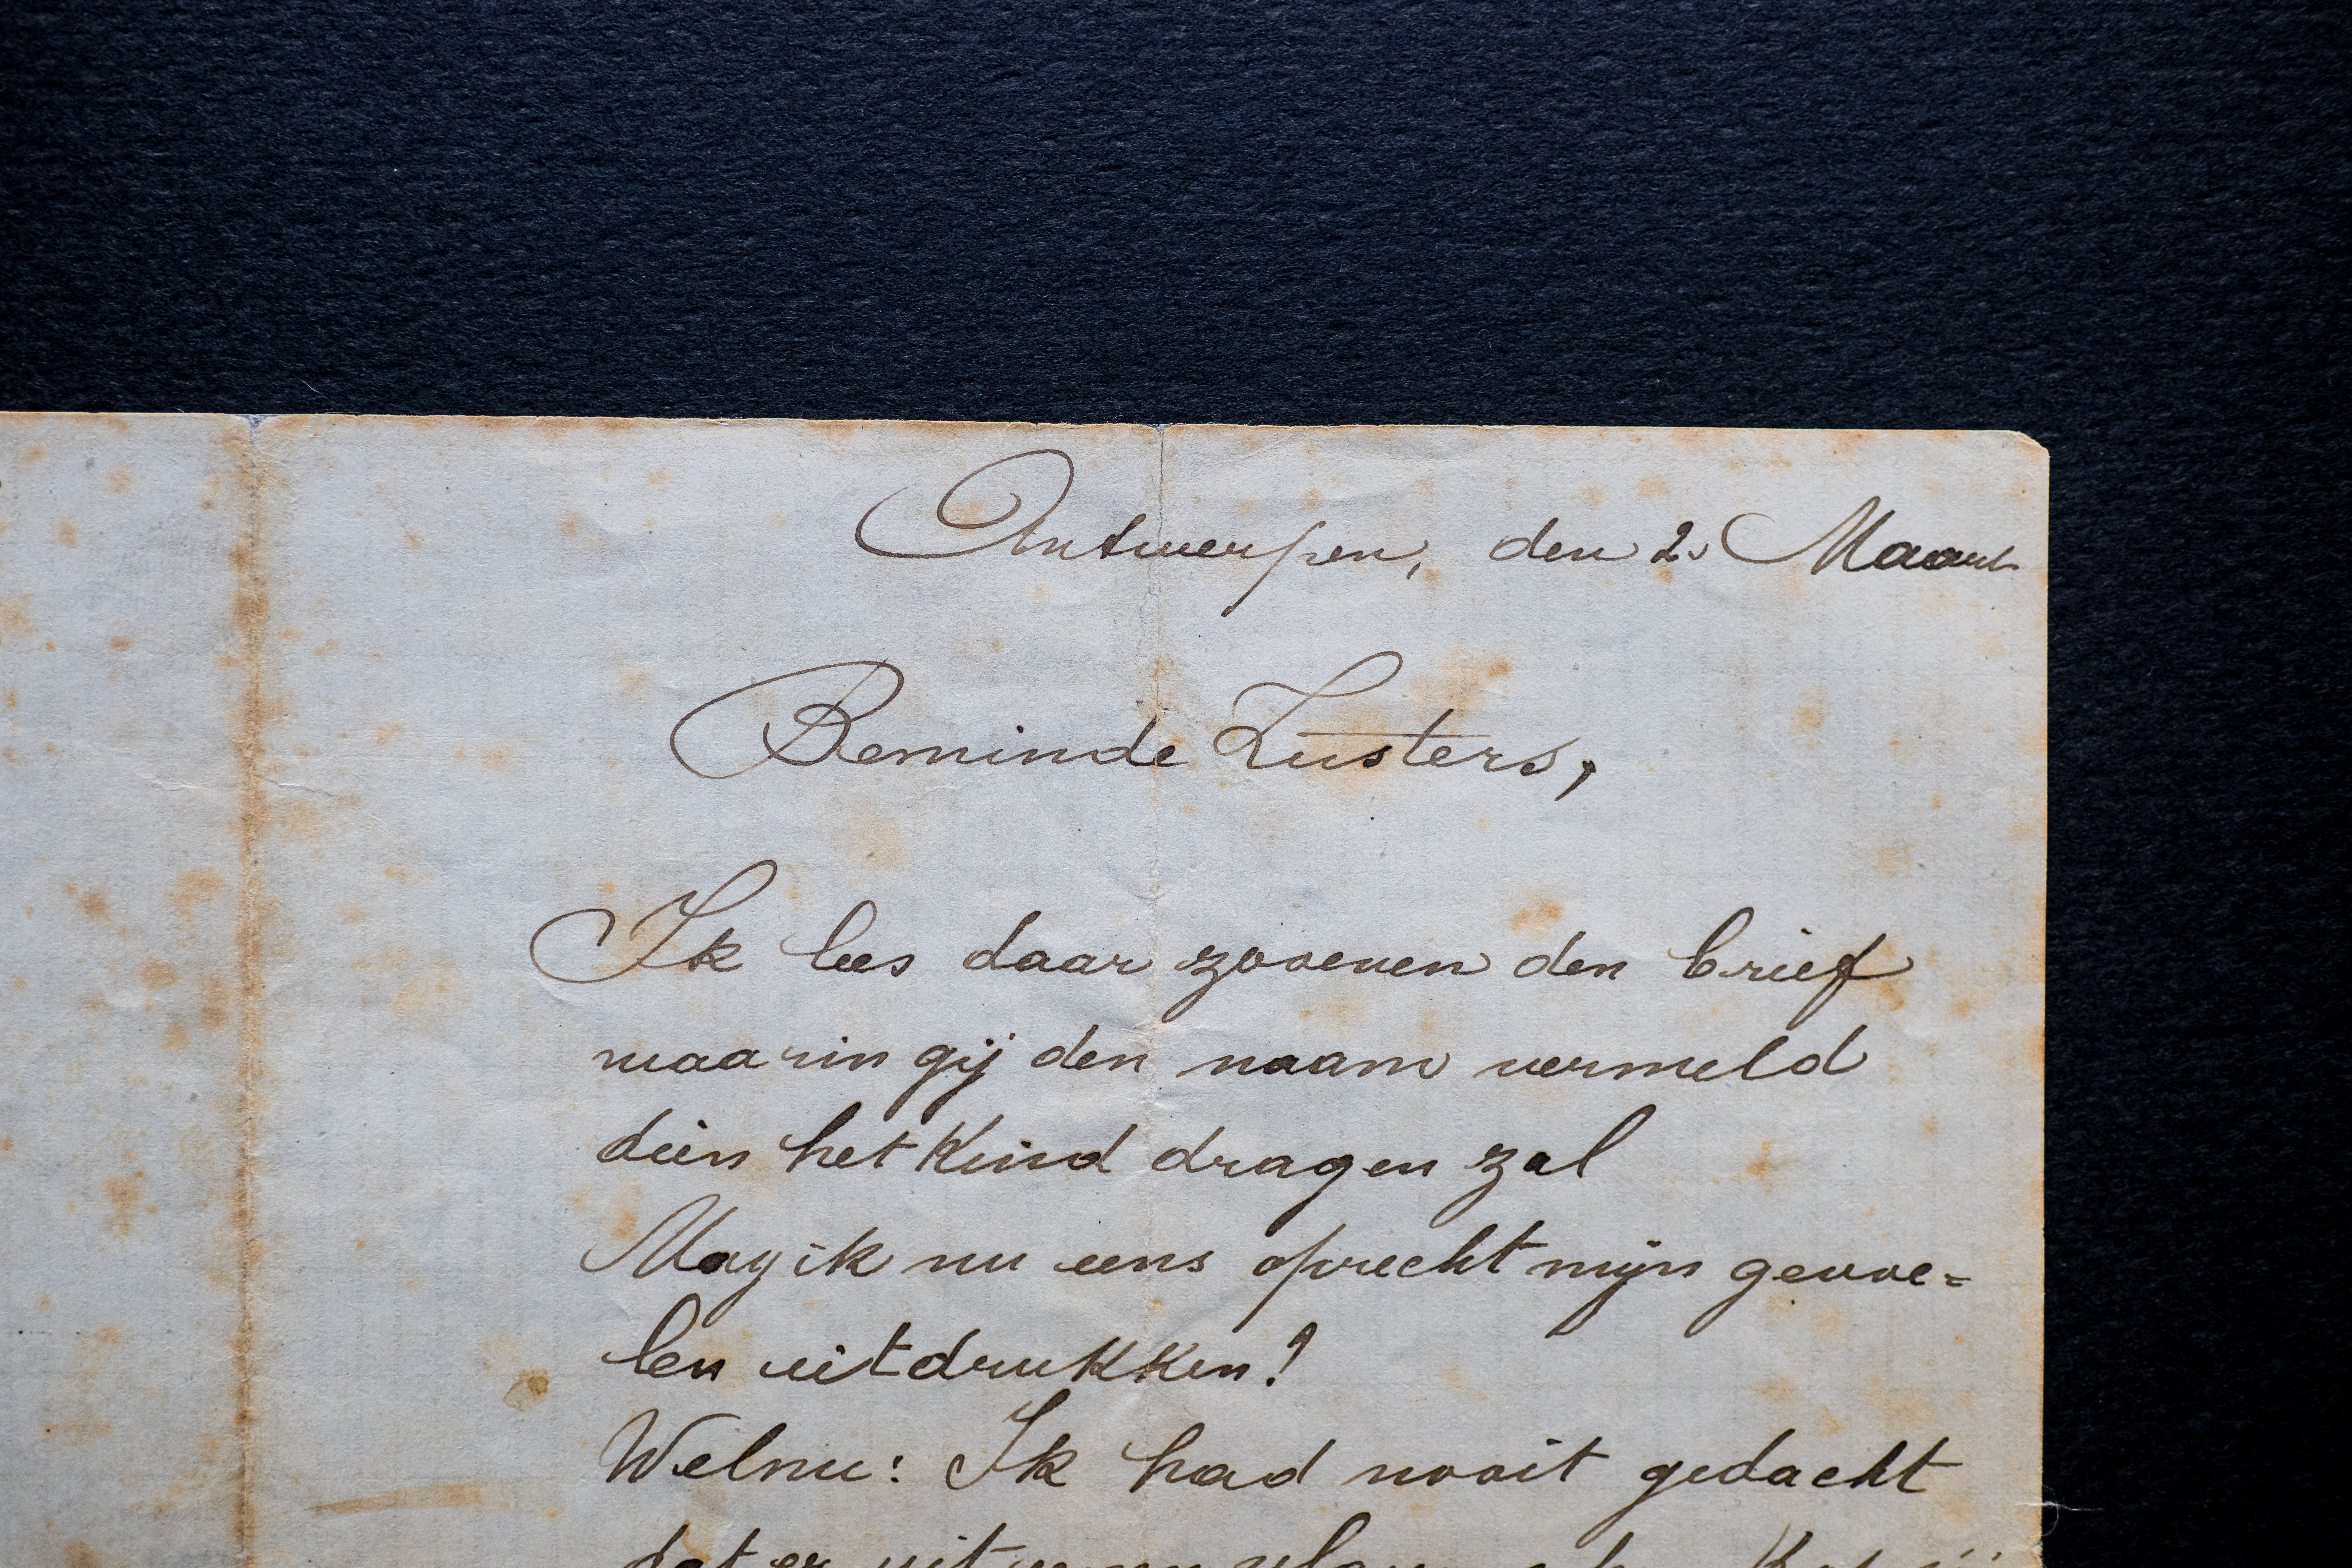 Antwerpen, den 2. Maart
Beminde Zusters,
Ik lees daar zooeven den brief
waarin gij den naam vermeld
dien het Kind dragen zal
Mag ik nu eens oprecht mijn gevoe=
len uitdrukken?
Welnu: Ik had nooit gedacht
dat er uit